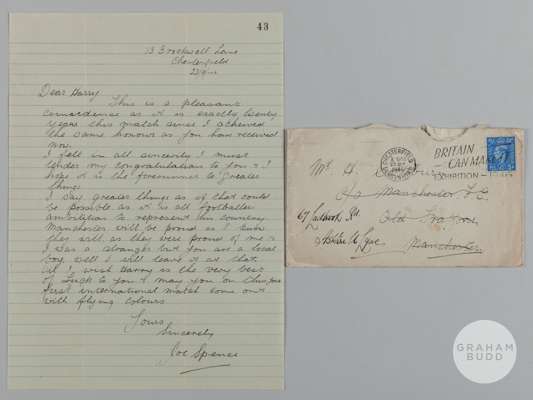 43
13 Brockwell Lane
Chesterfield
Dear Harry
This is a pleasant
coincidence as it is exactly twenty
years this match since I achieved
the same honour as you have received
now.
I felt in all sincerity I must
tender my congratulations to you & I
hope it is the forerunner to greater
things.
I say greater things as that could
be possible as it is all footballers
ambition to represent their country.
Manchester will be proud as I
they will as they were proud of me &
I was a stranger but you are a local
boy well I will leave it at that.
All I wish Harry is the very best
of luck to you & may you on this your
first international match come out
with flying colours
Yours
Sincerely
Joe Spence
CHESTERFIELD
BRITAIN
CAN MAKE IT
EXHIBITION
Mr. H.
c/o Manchester F.C.
67 St
Old Trafford
Ashton U Lyne
Manchester
GRAHAM
BUDD